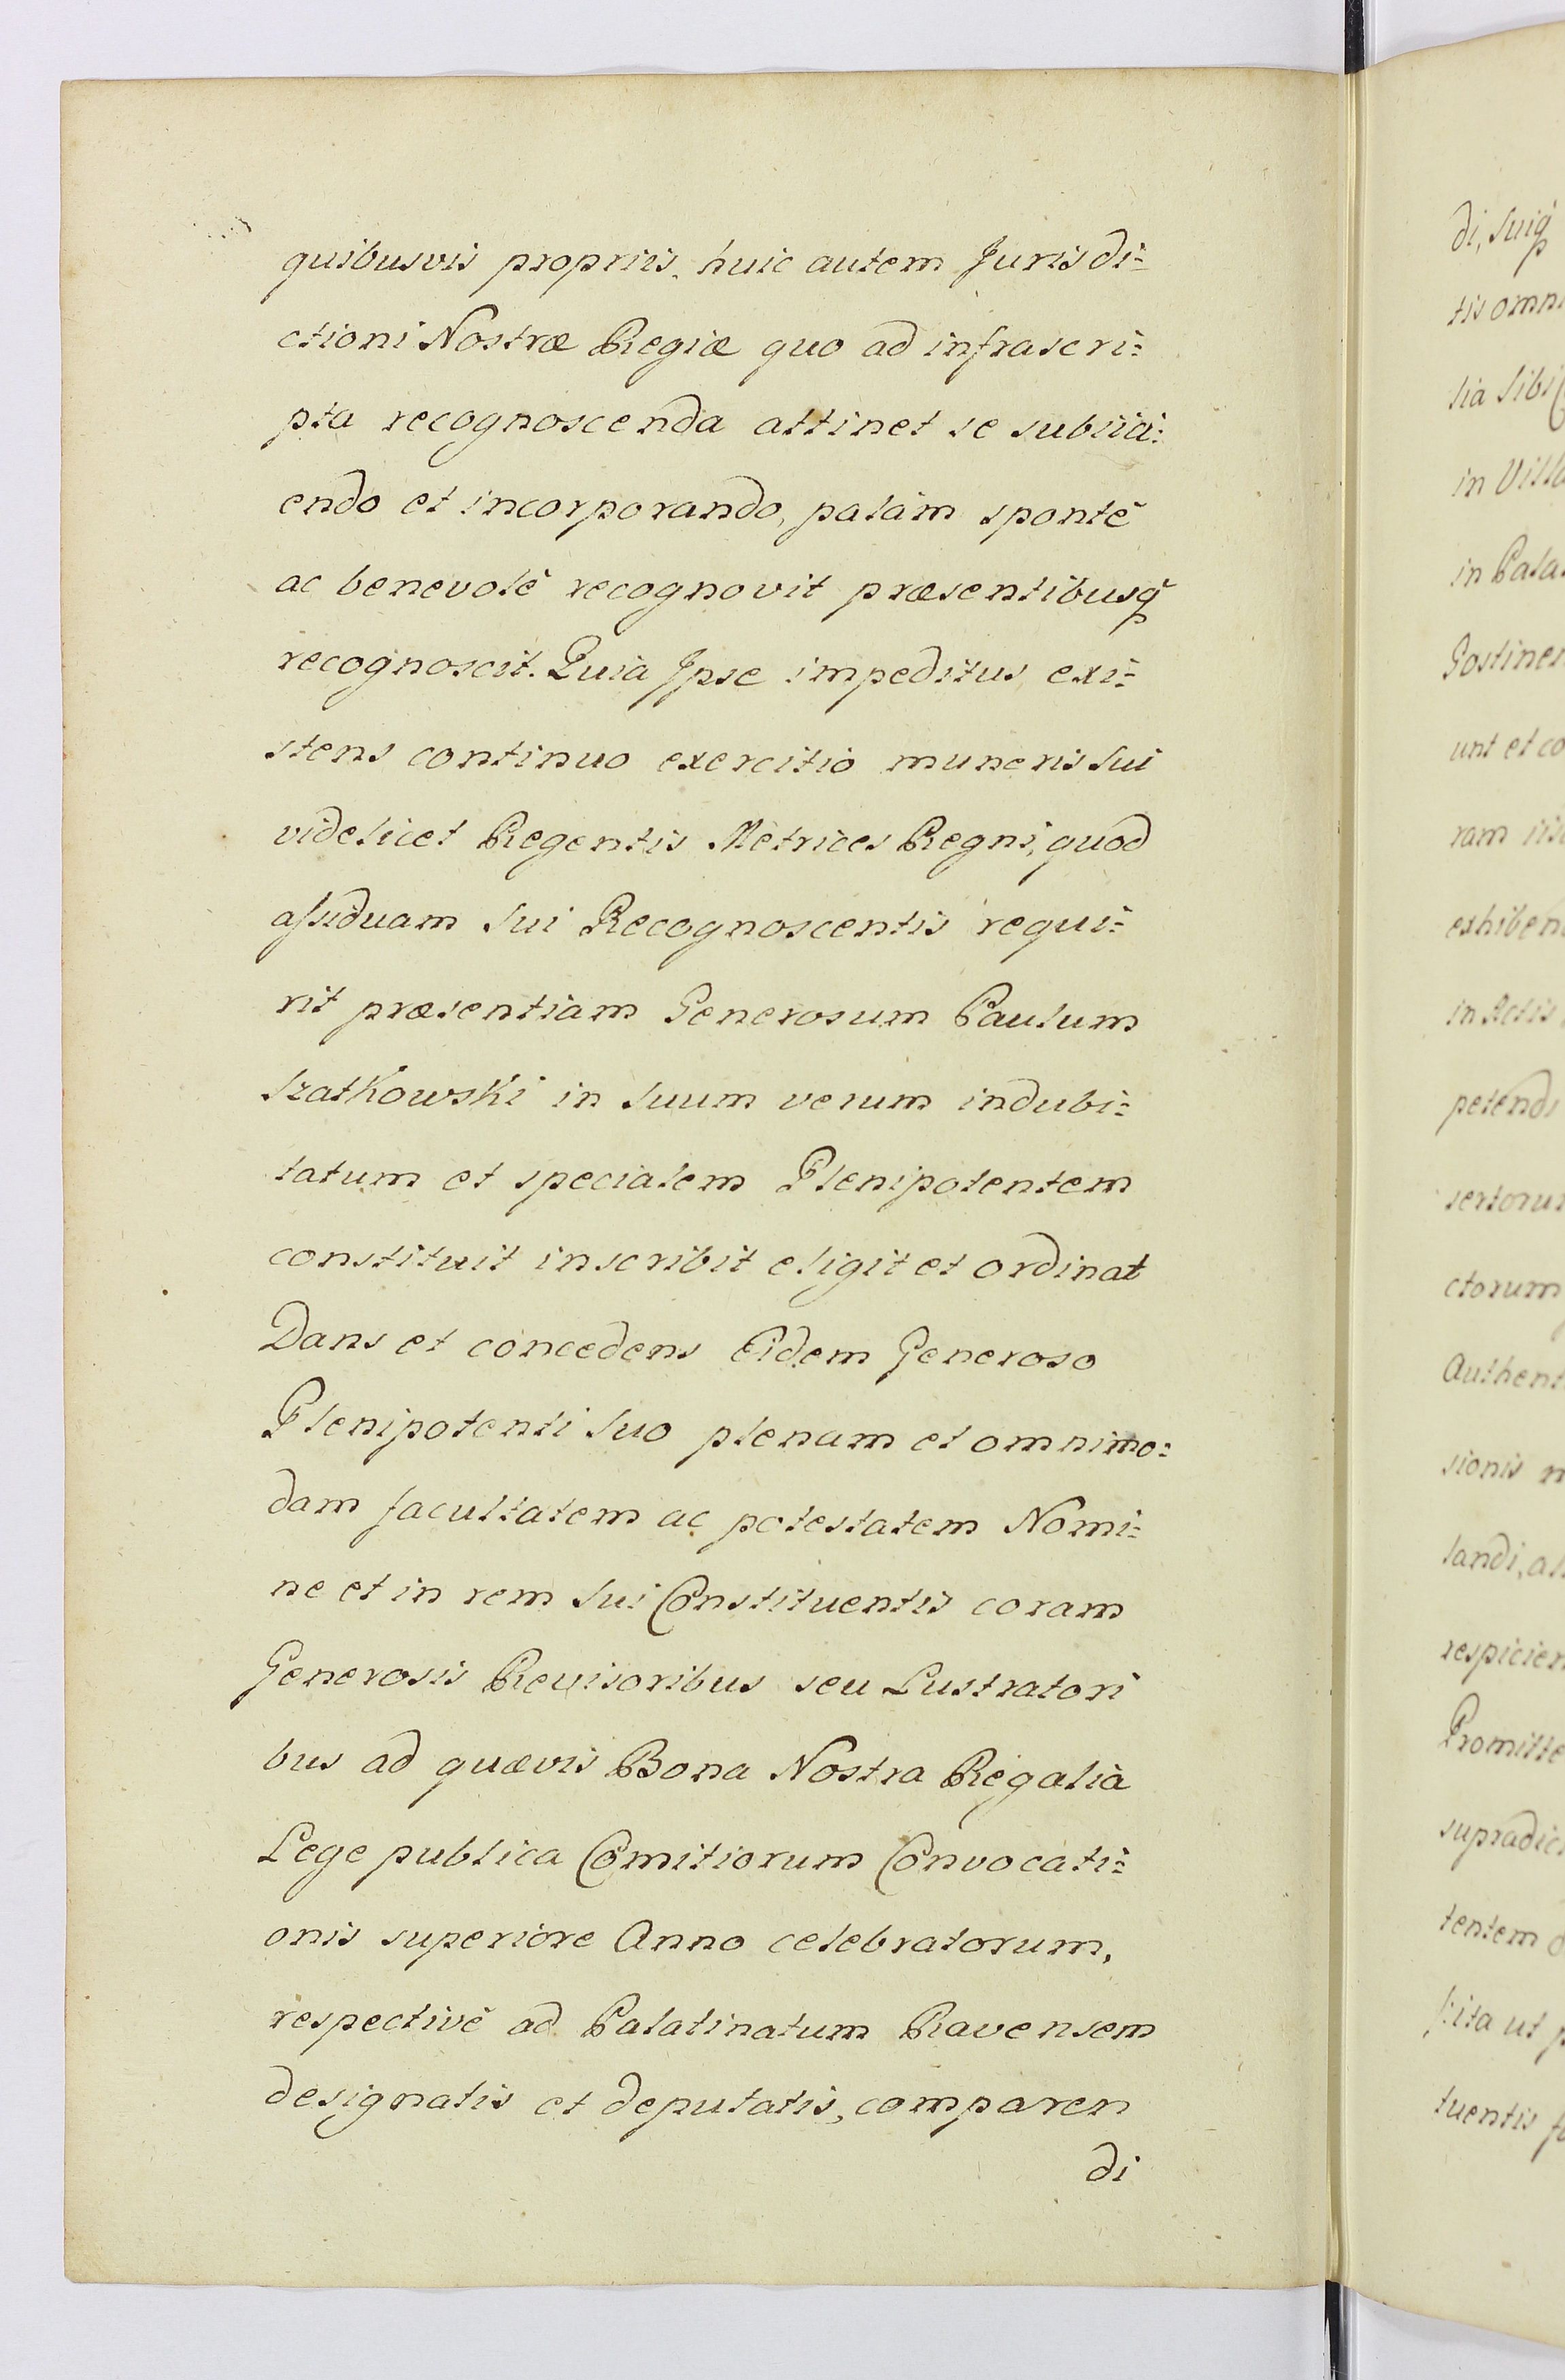 quibusvis propriis, huic autem Jurisdi=
ctioni Nostræ Regiæ quo ad infrascri=
pta recognoscenda attinet se subiici=
endo et incorporando, palàm spontè
ac benevolè recognovit præsentibusq̃
recognoscit. Quia Jpse impeditus exi=
stens continuo exercitio muneris Sui
videlicet Regentis Metrices Regni, quod
assiduam Sui Recognoscentis requi=
rit præsentiam Generosum Paulum
Szatkowski in Suum verum indubi=
tatum et specialem Plenipotentem
constituit inscribit eligit et ordinat
Dans et concedens Eidem Generoso
Plenipotenti Suo plenam et omnimo=
dam facultatem ac potestatem Nomi=
ne et in rem Sui Constituentis coram
Generosis Revisoribus seu Lustratori
bus ad quævis Bona Nostra Regalia
Lege publica Comitiorum Convocati=
onis superiore Anno celebratorum,
respectivè ad Palatinatum Ravensem
designatis et deputatis, comparen
di
di, Suiq̃
tis omni
in Villa
in Pala
Gostinen
unt et co
exhiben
in Actis
petendi
sertorum
ctorum
Authent
sionis
respicien
Promitte
supradic
tentem
ita ut
tuentis